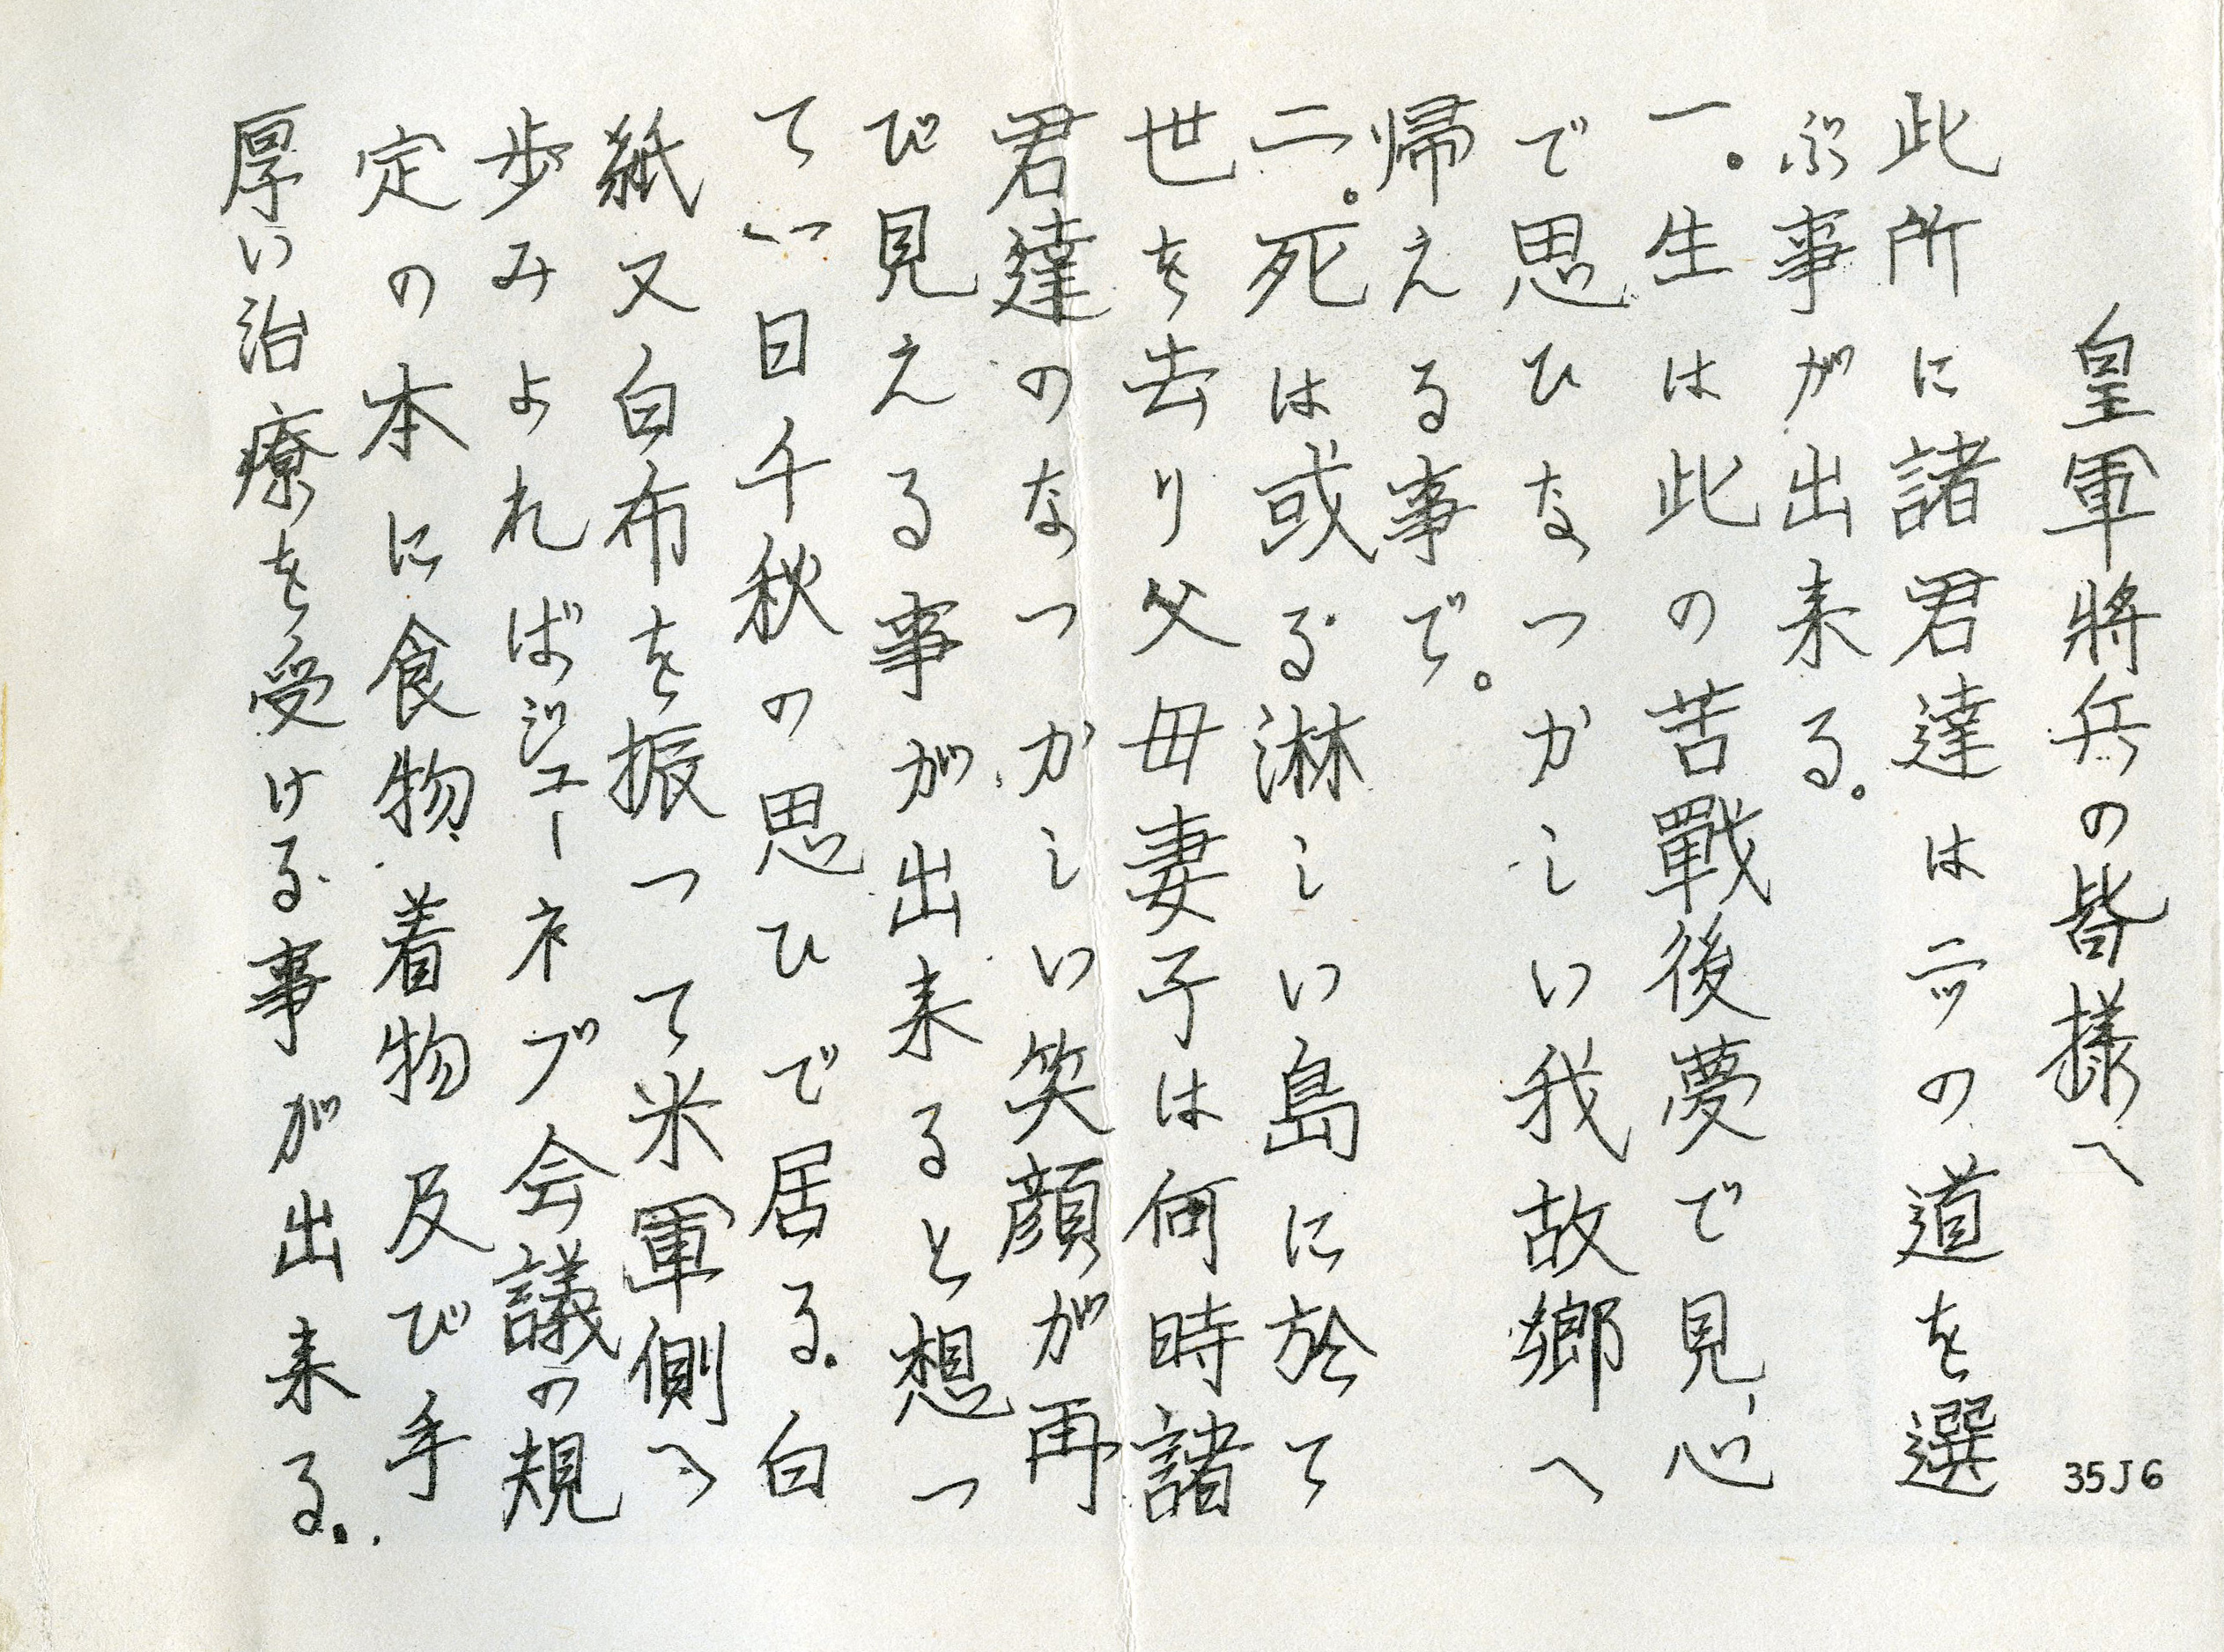 皇軍將兵の皆様へ
35J6
此所に諸君達は二ツの道を選
ぶ事が出来る。
一。生は此の苦戰後夢で見、心
で思ひなつかしい我故郷へ
帰える事で。
二。死は或る淋しい島に於て
世を去り父母妻子は何時諸
君達のなつかしい笑顔が再
び見える事が出来ると想つ
てい一日千秋の思ひで居る。白
紙又白布を振つて米軍側へ
歩みよればジューネブ会議の規
定の本に食物、着物及び手
厚い治療を受ける事が出来る。